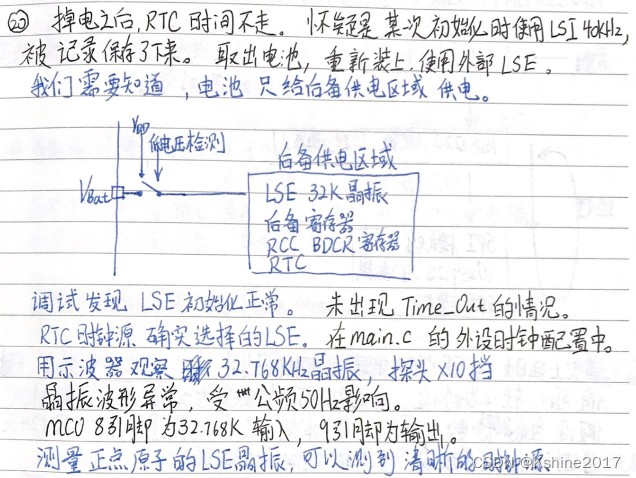 ㉒ 掉电之后,RTC时间不走。怀疑是某次初始化时使用LSI 40kHz,
被记录保存了下来。取出电池,重新装上,使用外部LSE。
我们需要知道,电池只给后备供电区域供电。
VDD
低电压检测
后备供电区域
VBat
LSE 32K晶振
后备寄存器
RCC BDCR寄存器
RTC
调试发现LSE初始化正常。未出现Time_Out的情况。
RTC时钟源确实选择的LSE。在main.c的外设时钟配置中。
用示波器观察 32.768KHz晶振,探头X10挡
晶振波形异常,受公频50Hz影响。
MCU 8引脚为32.768K输入,9引脚为输出。
测量正点原子的LSE晶振,可以测到清晰的时钟源
CSDN @Kshine2017